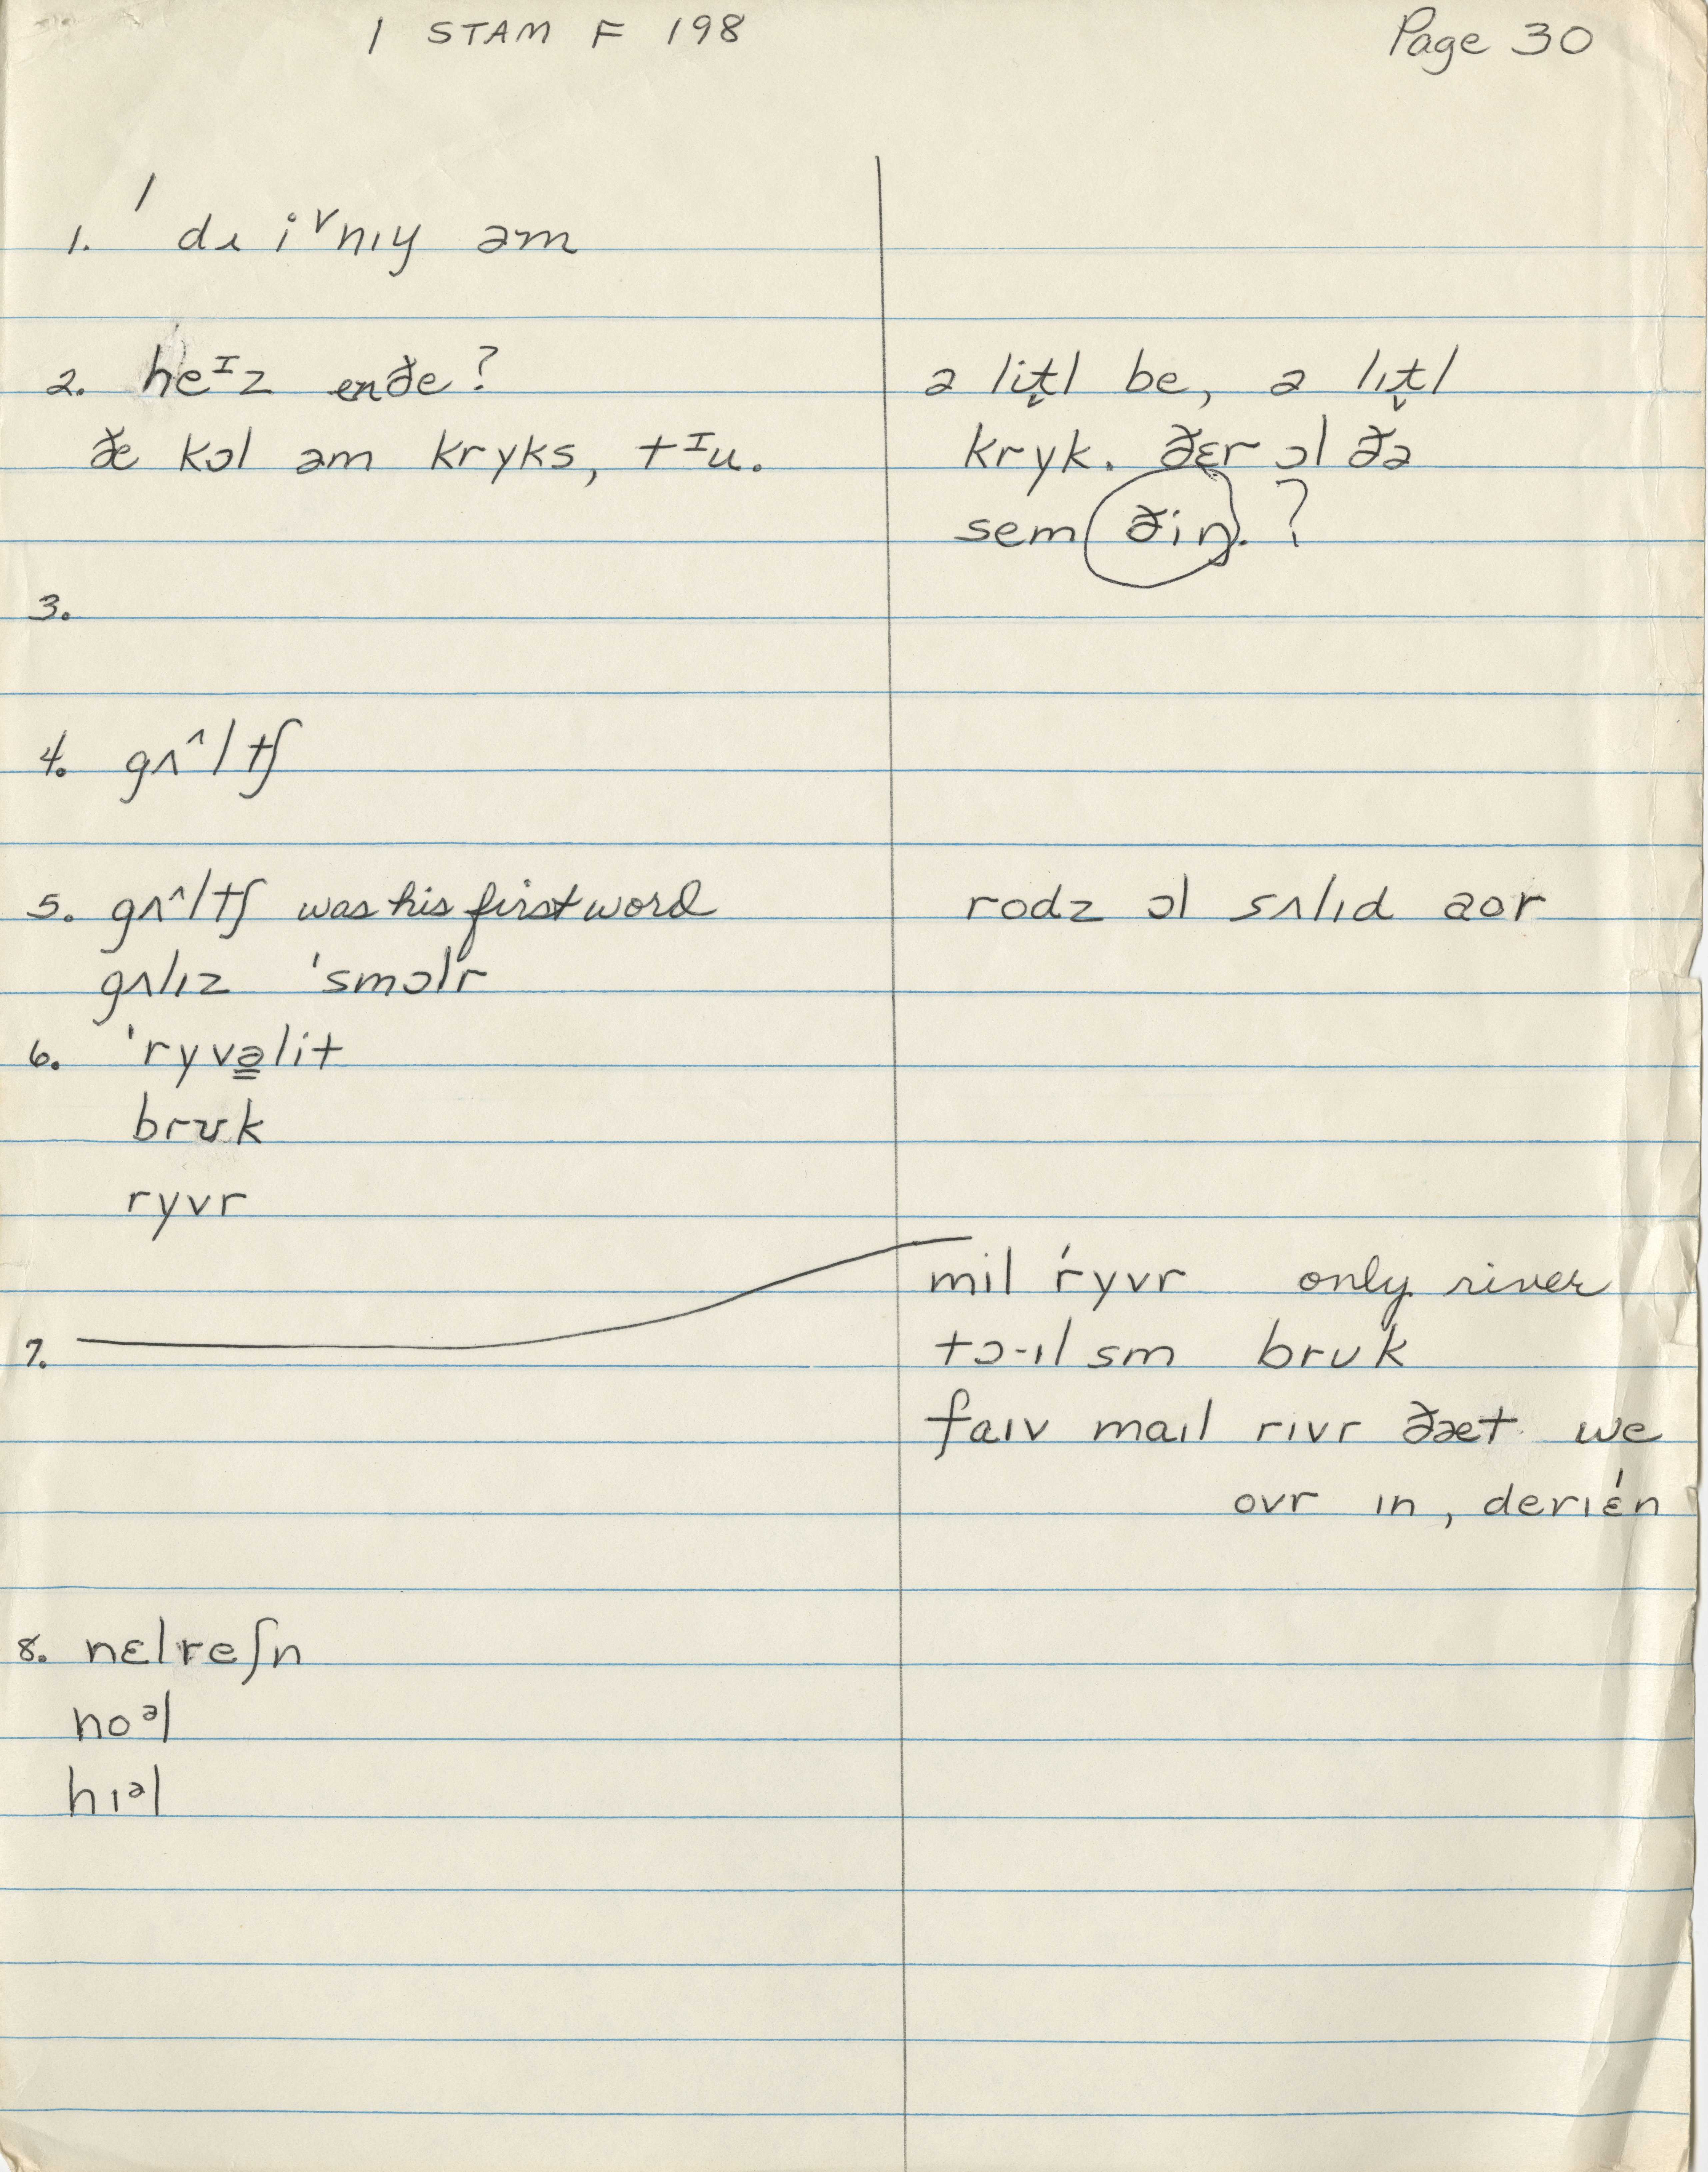 1 STAM F 198
Page 30
1. ˈdɪ iᵛnɪy əm
2. heᴵz enðe?
ðe kɔl əm kryks, tᴵu.
a lit̬l be, a lɪt̬l
kryk. ðɛr ɔl ðə
sem ðiŋ. ?
3.
4. gʌ^ltʃ
5. gʌ^ltʃ was his first word
rodz ɔl sʌlɪd aor
gʌlɪz ˈsmɔlr
6. ˈryvə̳lit
brʊk
ryvr
7.
mil ŕyvr only river
tɔ-ɪl sm brʊk
faɪv maɪl rɪvr ðæt we
ovr ɪn, derɪɛ́n
8. nɛlreʃn
hoᵊl
hɪᵊl